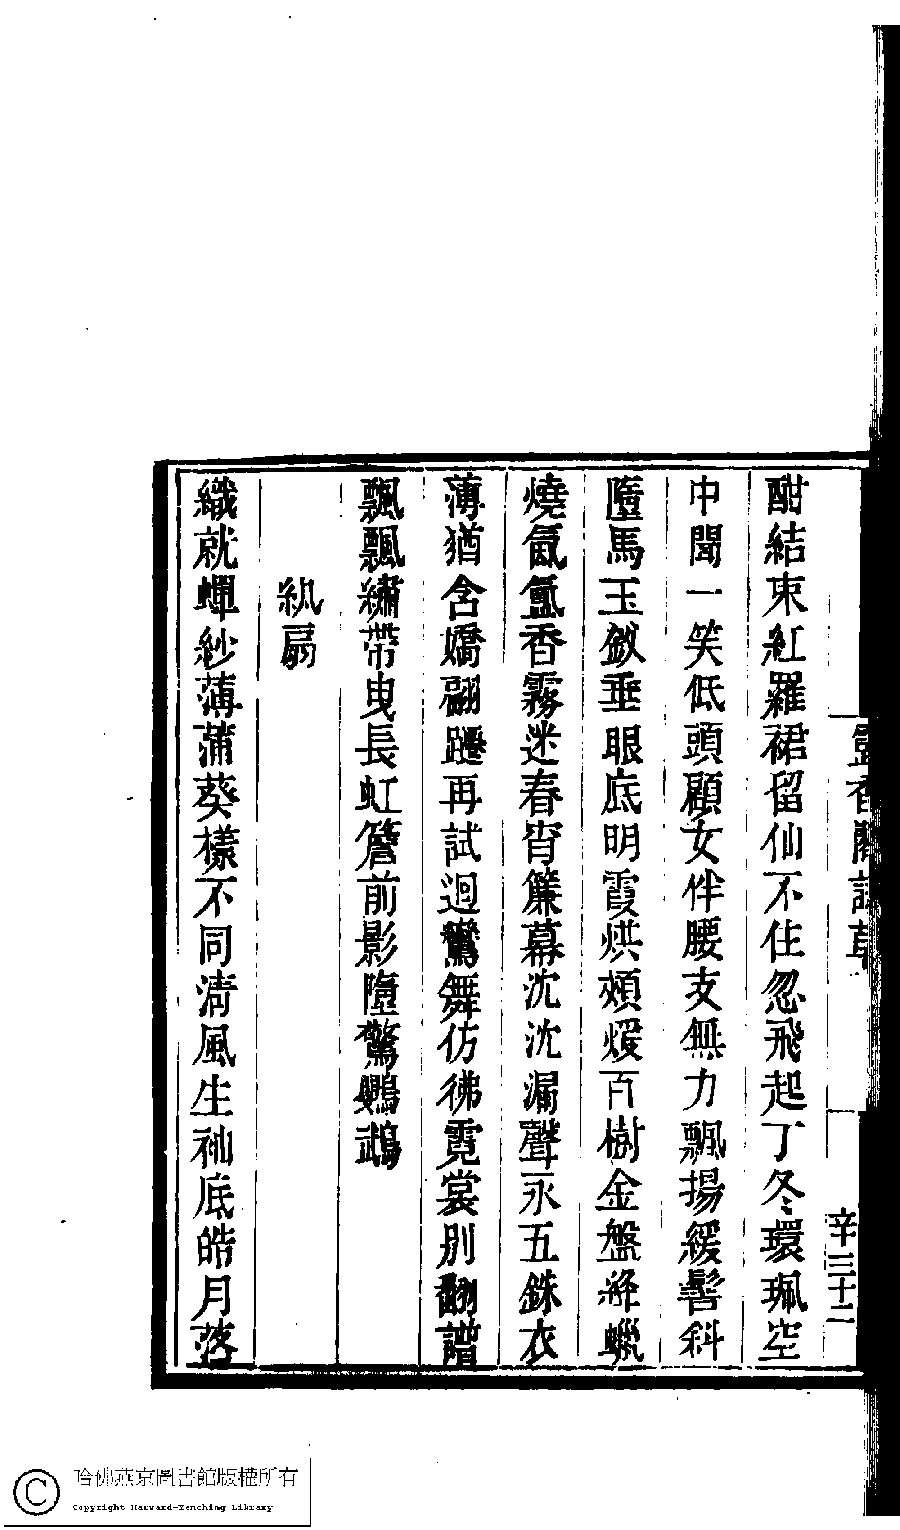 酣結束紅羅裙留仙不住忽飛起丁冬環珮空
中聞一笑低頭顧女伴腰支無力飄揚緩髻斜
墮馬玉釵垂眼底明霞烘頰煖百樹金盤絳蠟
燒氤氳香霧迷春宵簾幕沈沈漏聲永五銖衣
薄猶含嬌翩躚再試迴鸞舞仿彿霓裳別翻譜
飄飄繡帶曳長虹簷前影墮驚鸚鵡
紈扇
織就蟬紗薄蒲葵樣不同清風生袖底皓月落
香閣詩草
辛三十二
哈佛燕京圖書館版權所有
Copyright Harvard-Yenching Library